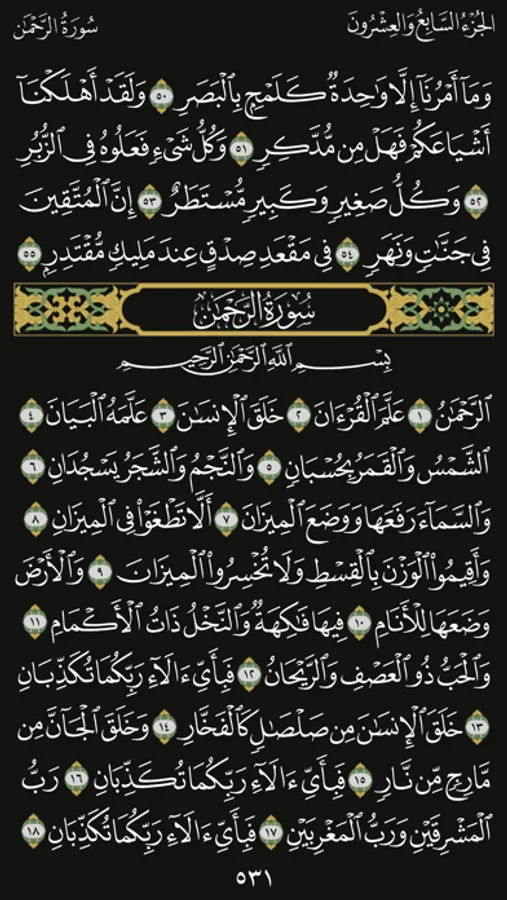 الجزء السابع والعشرون
سورة الرحمن
وَمَآ أَمْرُنَآ إِلَّا وَٰحِدَةٌ كَلَمْحٍۭ بِٱلْبَصَرِ ٥٠ وَلَقَدْ أَهْلَكْنَآ
أَشْيَاعَكُمْ فَهَلْ مِن مُّدَّكِرٍ ٥١ وَكُلُّ شَىْءٍ فَعَلُوهُ فِى ٱلزُّبُرِ
٥٢ وَكُلُّ صَغِيرٍ وَكَبِيرٍ مُّسْتَطَرٌ ٥٣ إِنَّ ٱلْمُتَّقِينَ
فِى جَنَّٰتٍ وَنَهَرٍ ٥٤ فِى مَقْعَدِ صِدْقٍ عِندَ مَلِيكٍ مُّقْتَدِرٍۭ ٥٥
سُورَةُ الرَّحْمَٰن
بِسْمِ ٱللَّهِ ٱلرَّحْمَٰنِ ٱلرَّحِيمِ
ٱلرَّحْمَٰنُ ١ عَلَّمَ ٱلْقُرْءَانَ ٢ خَلَقَ ٱلْإِنسَٰنَ ٣ عَلَّمَهُ ٱلْبَيَانَ ٤
ٱلشَّمْسُ وَٱلْقَمَرُ بِحُسْبَانٍ ٥ وَٱلنَّجْمُ وَٱلشَّجَرُ يَسْجُدَانِ ٦
وَٱلسَّمَآءَ رَفَعَهَا وَوَضَعَ ٱلْمِيزَانَ ٧ أَلَّا تَطْغَوْا۟ فِى ٱلْمِيزَانِ ٨
وَأَقِيمُوا۟ ٱلْوَزْنَ بِٱلْقِسْطِ وَلَا تُخْسِرُوا۟ ٱلْمِيزَانَ ٩ وَٱلْأَرْضَ
وَضَعَهَا لِلْأَنَامِ ١٠ فِيهَا فَٰكِهَةٌ وَٱلنَّخْلُ ذَاتُ ٱلْأَكْمَامِ ١١
وَٱلْحَبُّ ذُو ٱلْعَصْفِ وَٱلرَّيْحَانُ ١٢ فَبِأَىِّ ءَالَآءِ رَبِّكُمَا تُكَذِّبَانِ
١٣ خَلَقَ ٱلْإِنسَٰنَ مِن صَلْصَٰلٍ كَٱلْفَخَّارِ ١٤ وَخَلَقَ ٱلْجَآنَّ مِن
مَّارِجٍ مِّن نَّارٍ ١٥ فَبِأَىِّ ءَالَآءِ رَبِّكُمَا تُكَذِّبَانِ ١٦ رَبُّ
ٱلْمَشْرِقَيْنِ وَرَبُّ ٱلْمَغْرِبَيْنِ ١٧ فَبِأَىِّ ءَالَآءِ رَبِّكُمَا تُكَذِّبَانِ ١٨
٥٣١